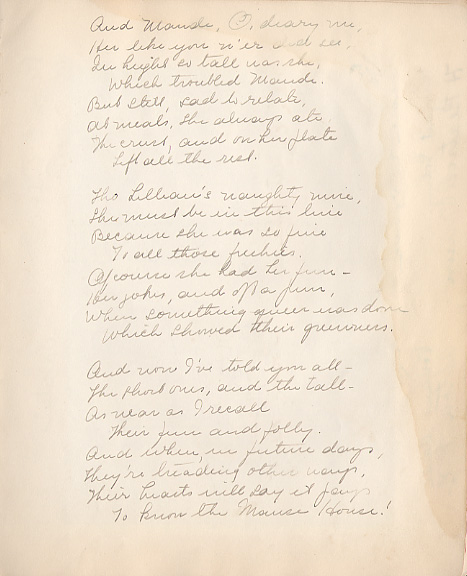 And Maude, O, deary me,
Her like you n'er did see,
In hight so tall was she,
Which troubled Maude.
But still, sad to relate,
At meals, she always ate
The crust, and on her plate
Left all the rest.
Tho Lillian's naughty nine,
She must be in this line
Because she was so fine
To all those freshies.
Of course she had her fun -
Her jokes, and oft a pun,
When something queer was don
Which showed their greenness.
And now I've told you all -
The short ones, and the tall -
As near as I recall
Their fun and folly.
And when in future days,
They're treading other ways,
Their hearts will say it pays
To know the Manse House!